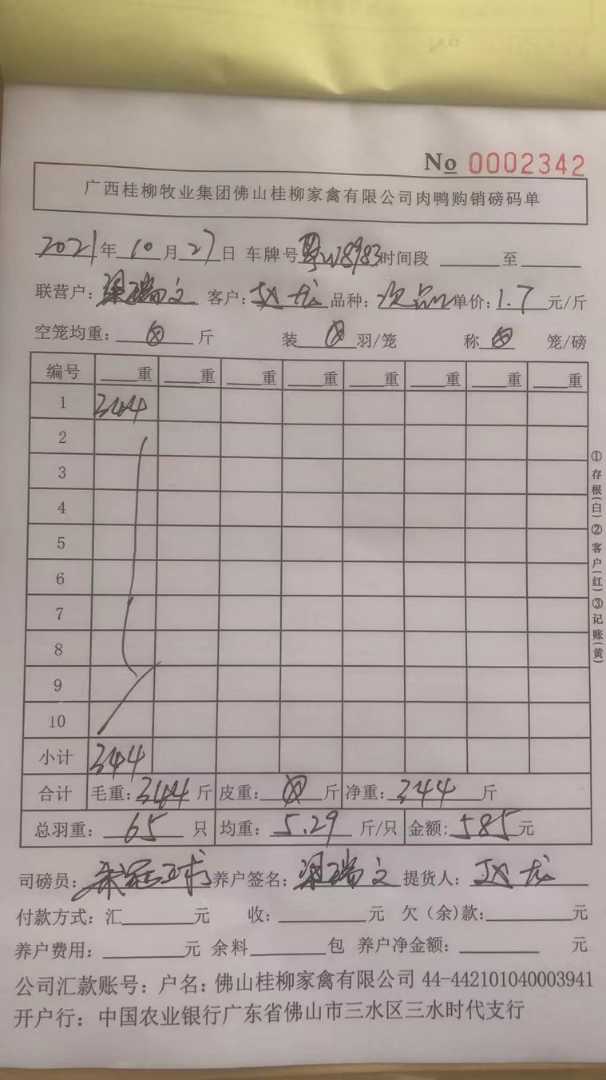 No 0002342
广西桂柳牧业集团佛山桂柳家禽有限公司肉鸭购销磅码单
2021年10月27日 车牌号粤W8983时间段____至____
联营户:梁瑞文 客户:赵龙 品种:次品 单价:1.7元/斤
空笼均重:0斤 装0羽/笼 称0笼/磅
编号 __重 __重 __重 __重 __重 __重 __重 __重
1 344
2
3
4
5
6
7
8
9
10
小计 344
合计 毛重:344斤 皮重:0斤 净重:344斤
总羽重:65只 均重:5.29斤/只 金额:585元
司磅员: 养户签名:梁瑞文 提货人:赵龙
付款方式:汇____元 收:____元 欠(余)款:____元
养户费用:____元 余料____包 养户净金额:____元
公司汇款账号:户名:佛山桂柳家禽有限公司 44-442101040003941
开户行:中国农业银行广东省佛山市三水区三水时代支行
①存根(白)②客户(红)③记账(黄)